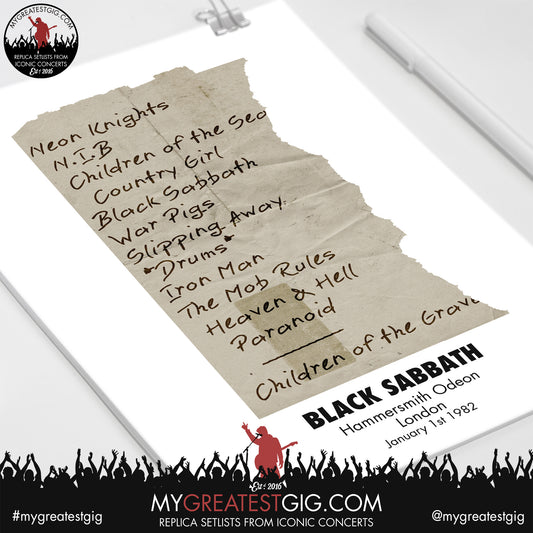 MYGREATESTGIG.COM
REPLICA SETLISTS FROM
ICONIC CONCERTS
Est 2016
Neon Knights
N.I.B
Children of the Sea
Country Girl
Black Sabbath
War Pigs
Slipping Away
*Drums*
Iron Man
The Mob Rules
Heaven & Hell
Paranoid
Children of the Grave
BLACK SABBATH
Hammersmith Odeon
London
January 1st 1982
Est 2016
#mygreatestgig
MYGREATESTGIG.COM
REPLICA SETLISTS FROM ICONIC CONCERTS
@mygreatestgig